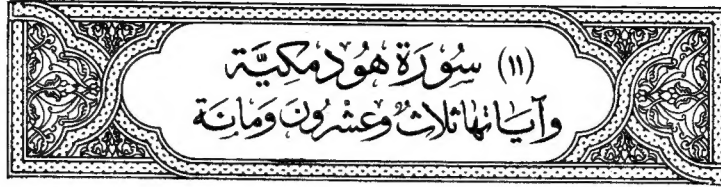 (١١) سُورَة هُود مَكيَّة
وآيَاتهَا ثَلاثٌ وَعشْرُونَ وَمائَة